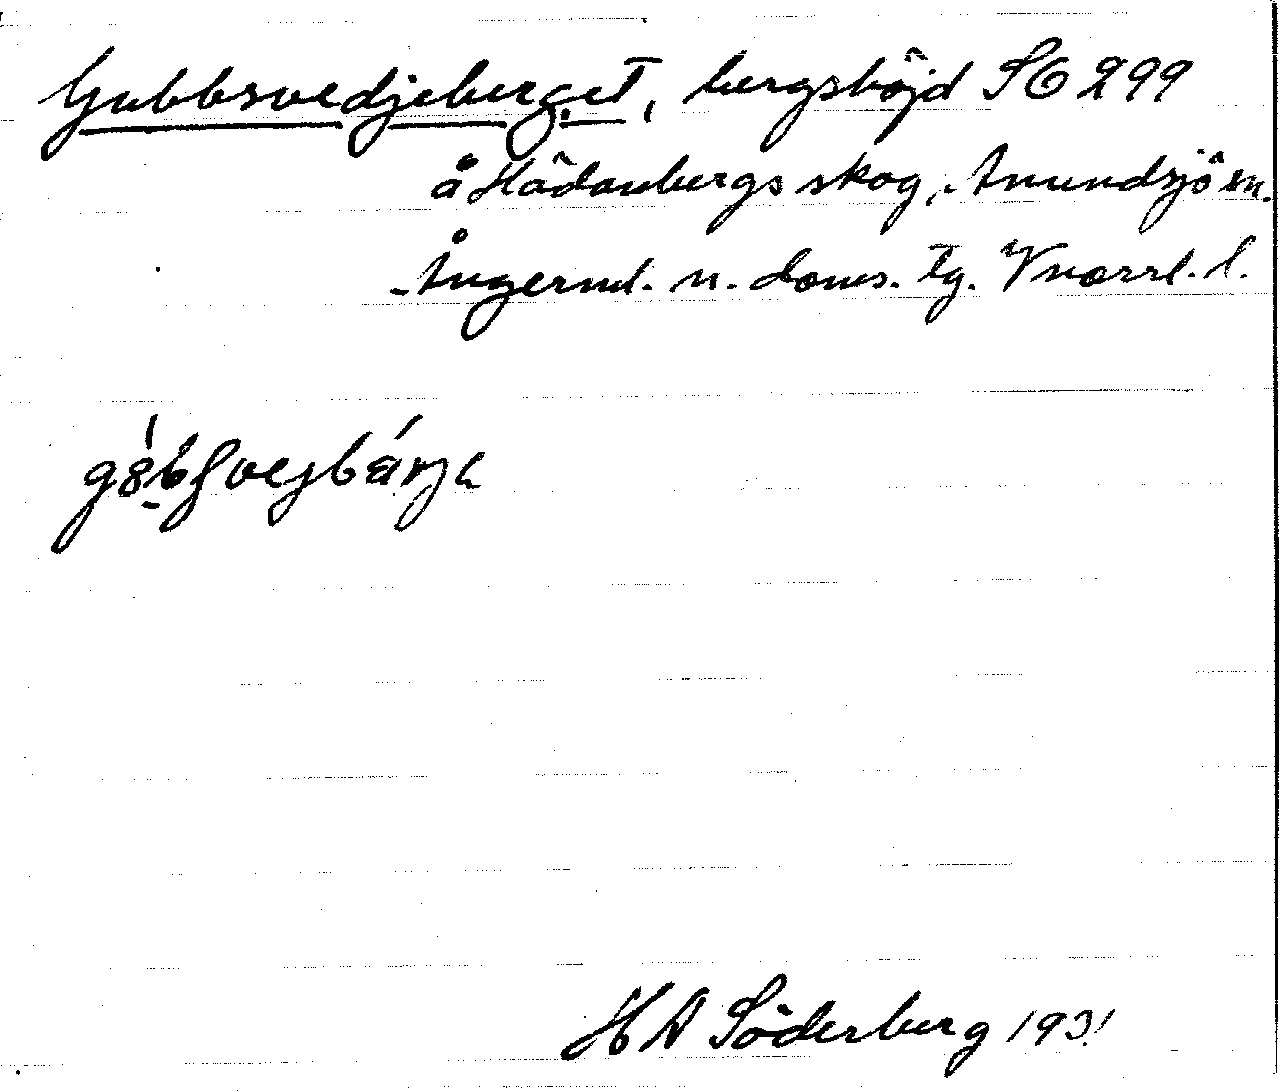 Gubbsvedjeberget, bergshöjd SO 299
å Hädanbergs skog, Anundsjö sn.
Ångerml. n. doms. tg. Vnorrl. l.
H A Söderberg 1931